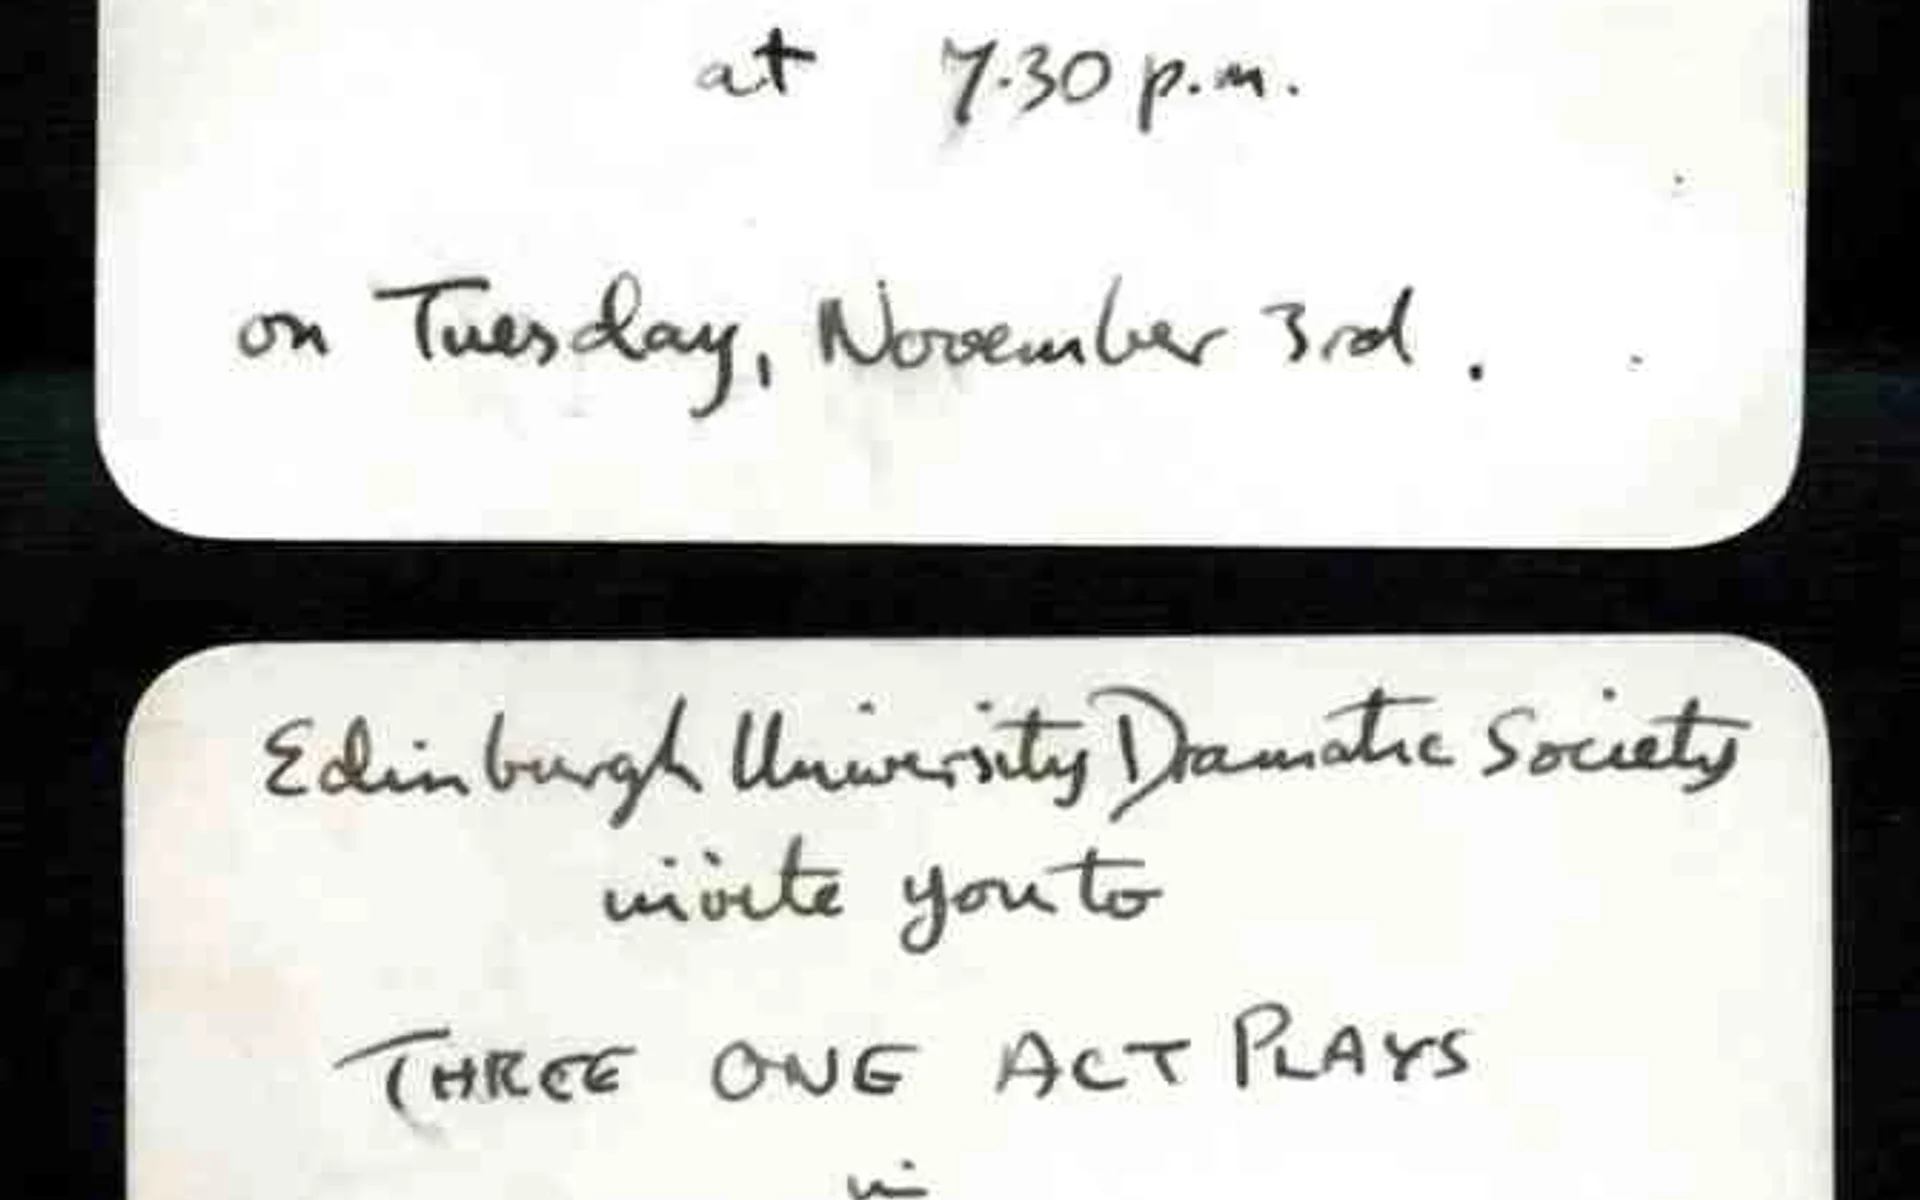 at 7.30 p.m.
on Tuesday, November 3rd.
Edinburgh University Dramatic Society
invite you to
THREE ONE ACT PLAYS
in